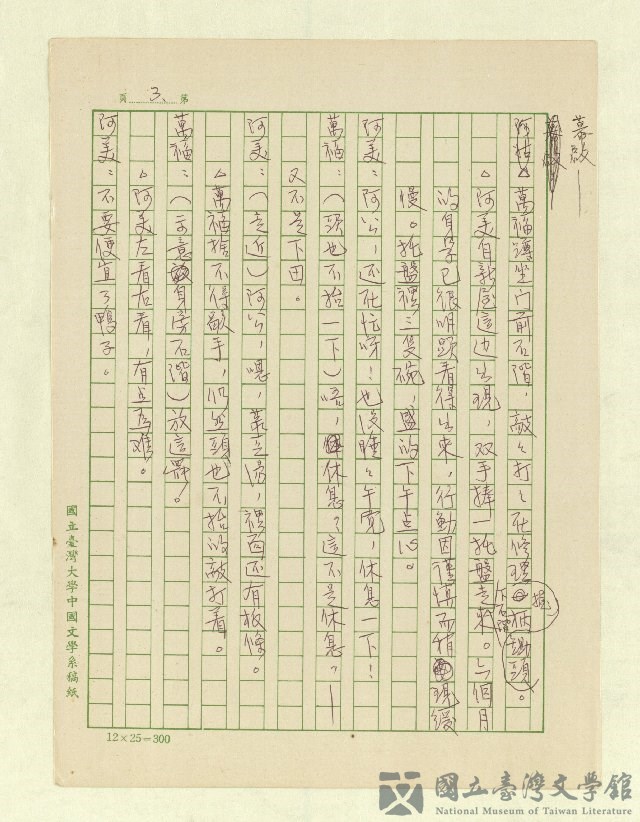 第 3 頁
慕毅—
△萬福蹲坐門前石階，敲々打々在修理一把柄鋤頭。
△阿美自新屋這边出現，双手捧一托盤走來。六個月
的身孕已很明顯看得出來，行動因謹慎而稍現緩
慢。托盤裡三隻碗，盛的下午点心。
阿美：阿公，还在忙呀！也沒睡々午覺，休息一下！
萬福：（頭也不抬一下）唔，休息？這不是休息？—
又不是下田。
阿美：（走近）阿公，喏，蕃豆湯，裡面还有板條。
△萬福捨不得歇手，仍然頭也不抬的敲打着。
萬福：（示意身旁石階）放這罷！
△阿美左看右看，有点為难。
阿美：不要便宜了鴨子。
國立臺灣大學中國文學系稿紙
12×25=300
國立臺灣文學館
National Museum of Taiwan Literature